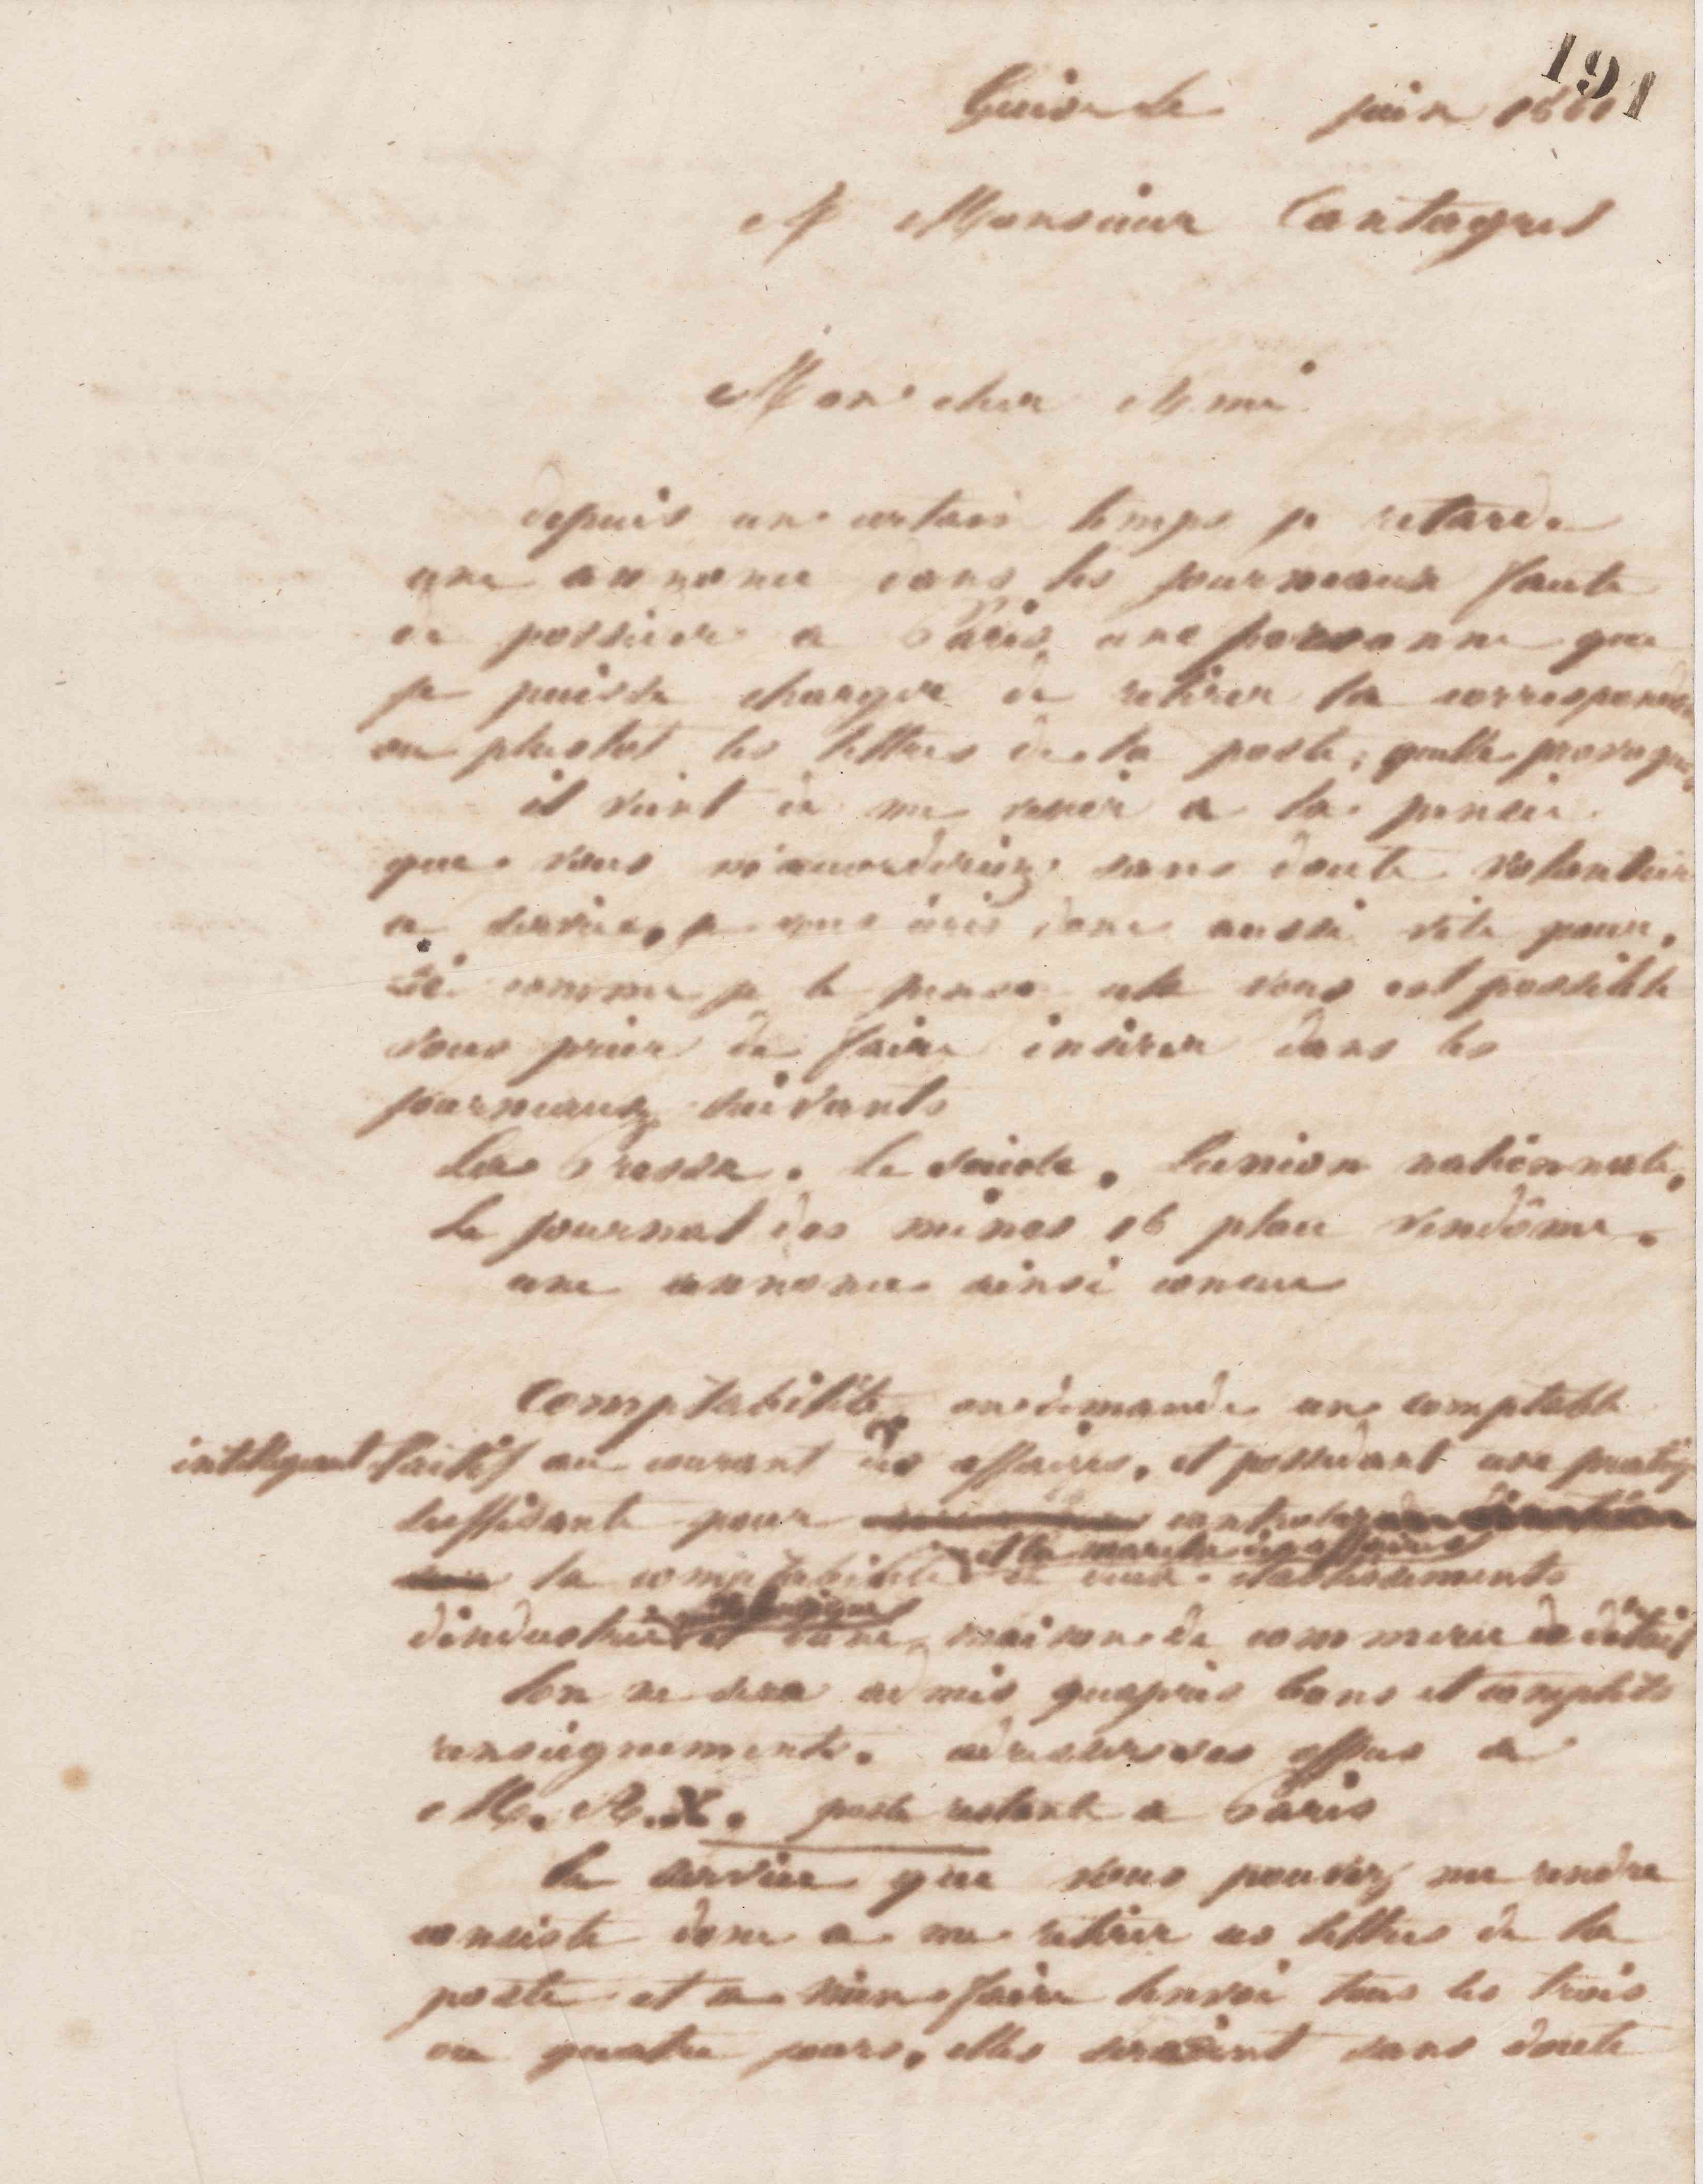 191
Guise le juin 1861
A Monsieur Cantagrel
Mon cher Ami
depuis un certain temps je retarde
une annonce dans les journeaux faute
de posseder a Paris une personne que
je puisse charger de retirer la correspond
ou plustot les lettres de la poste, quelle provoque
il vient de me venir a la pensée
que vous m'accorderiez sans doute volontier
ce service, je vous écris donc aussi vite pour,
si comme je le pense cela vous est possible
vous prier de faire inserer dans les
journeaux suivants
La Presse. le siecle, lunion nationnale,
le journal des mines 16 place Vendôme.
une annonce ainsi concue
Comptabilité on demande un comptable
intelligent actif au courant des affaires, et possedant une pratiq
suffisante pour controler
et la marche des affaires
la comptabilité de deux etablissements
dindustrie et dune maison de commerce de détail
lon ne sera admis quaprès bons et complets
renseignements. adresser ses offres a
M. A. X. poste restante a Paris
le service que vous pouvez me rendre
consiste donc a me retirer ces lettres de la
poste et a men faire lenvoi tous les trois
ou quatre jours, elles seraient sans doute